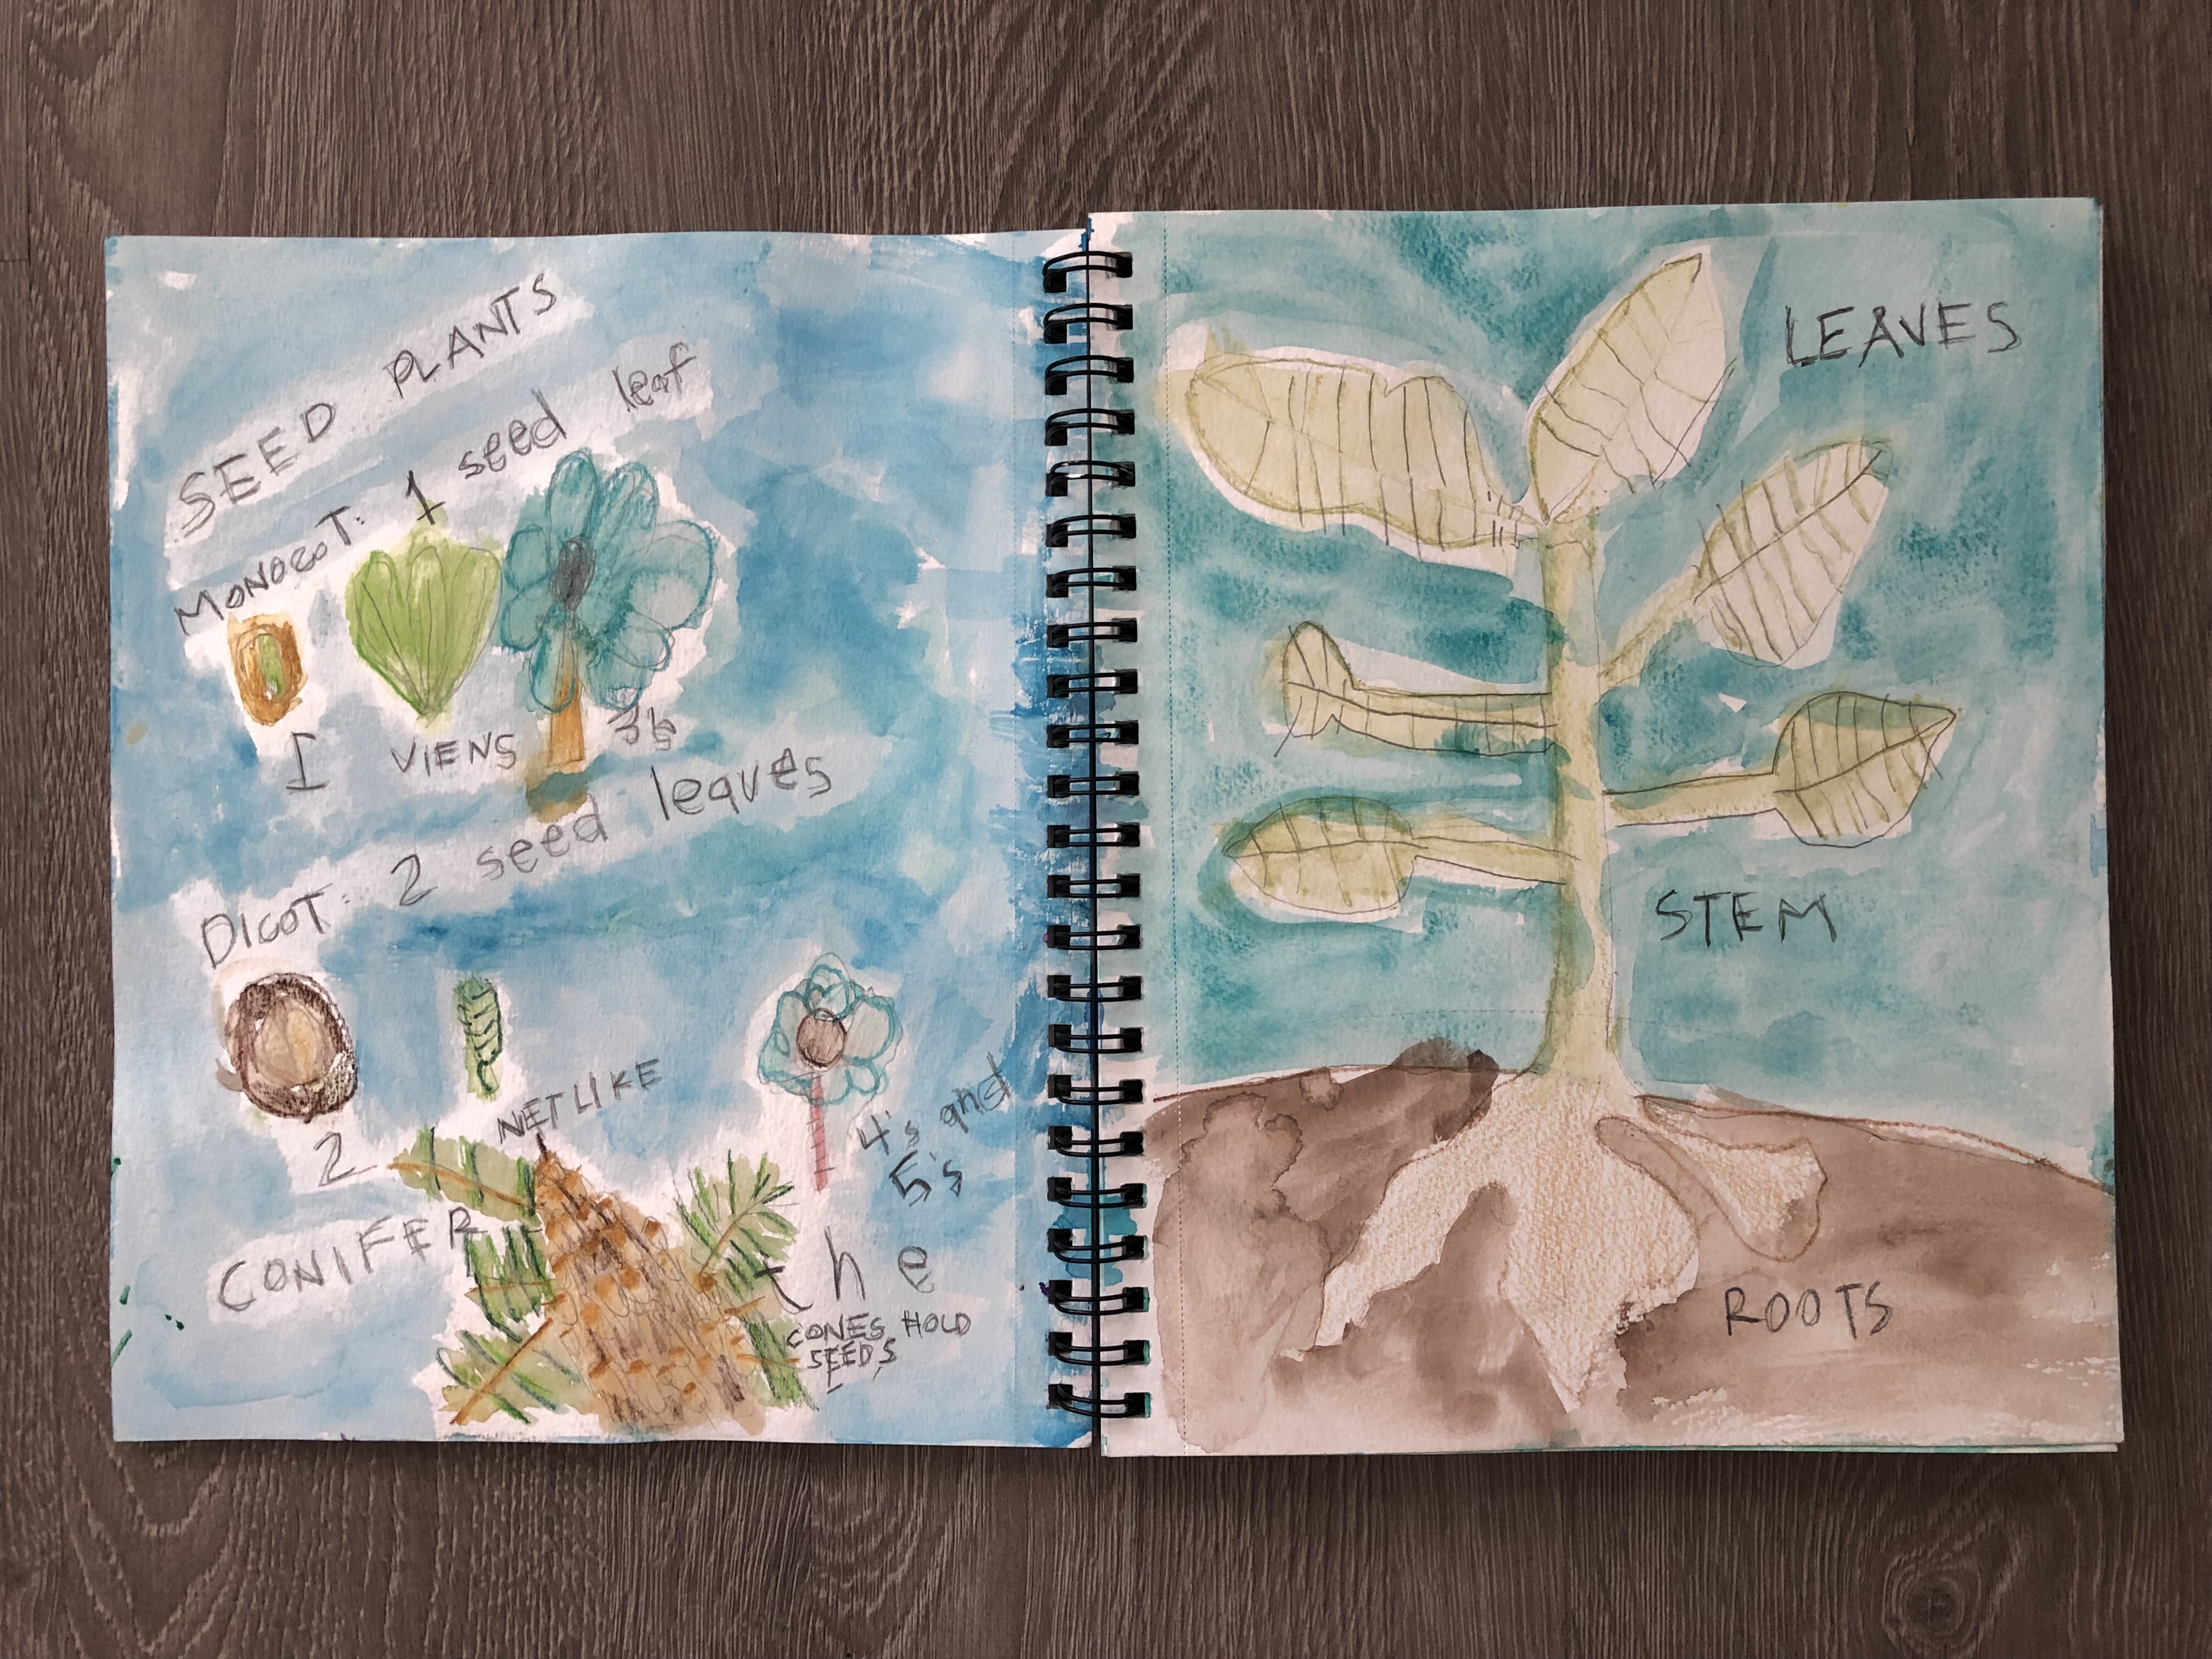 SEED PLANTS
MONOCOT: 1 seed leaf
1 VIENS 3s
DICOT: 2 seed leaves
2 NETLIKE 4's and
5's
CONIFER the
CONES HOLD
SEEDS
LEAVES
STEM
ROOTS